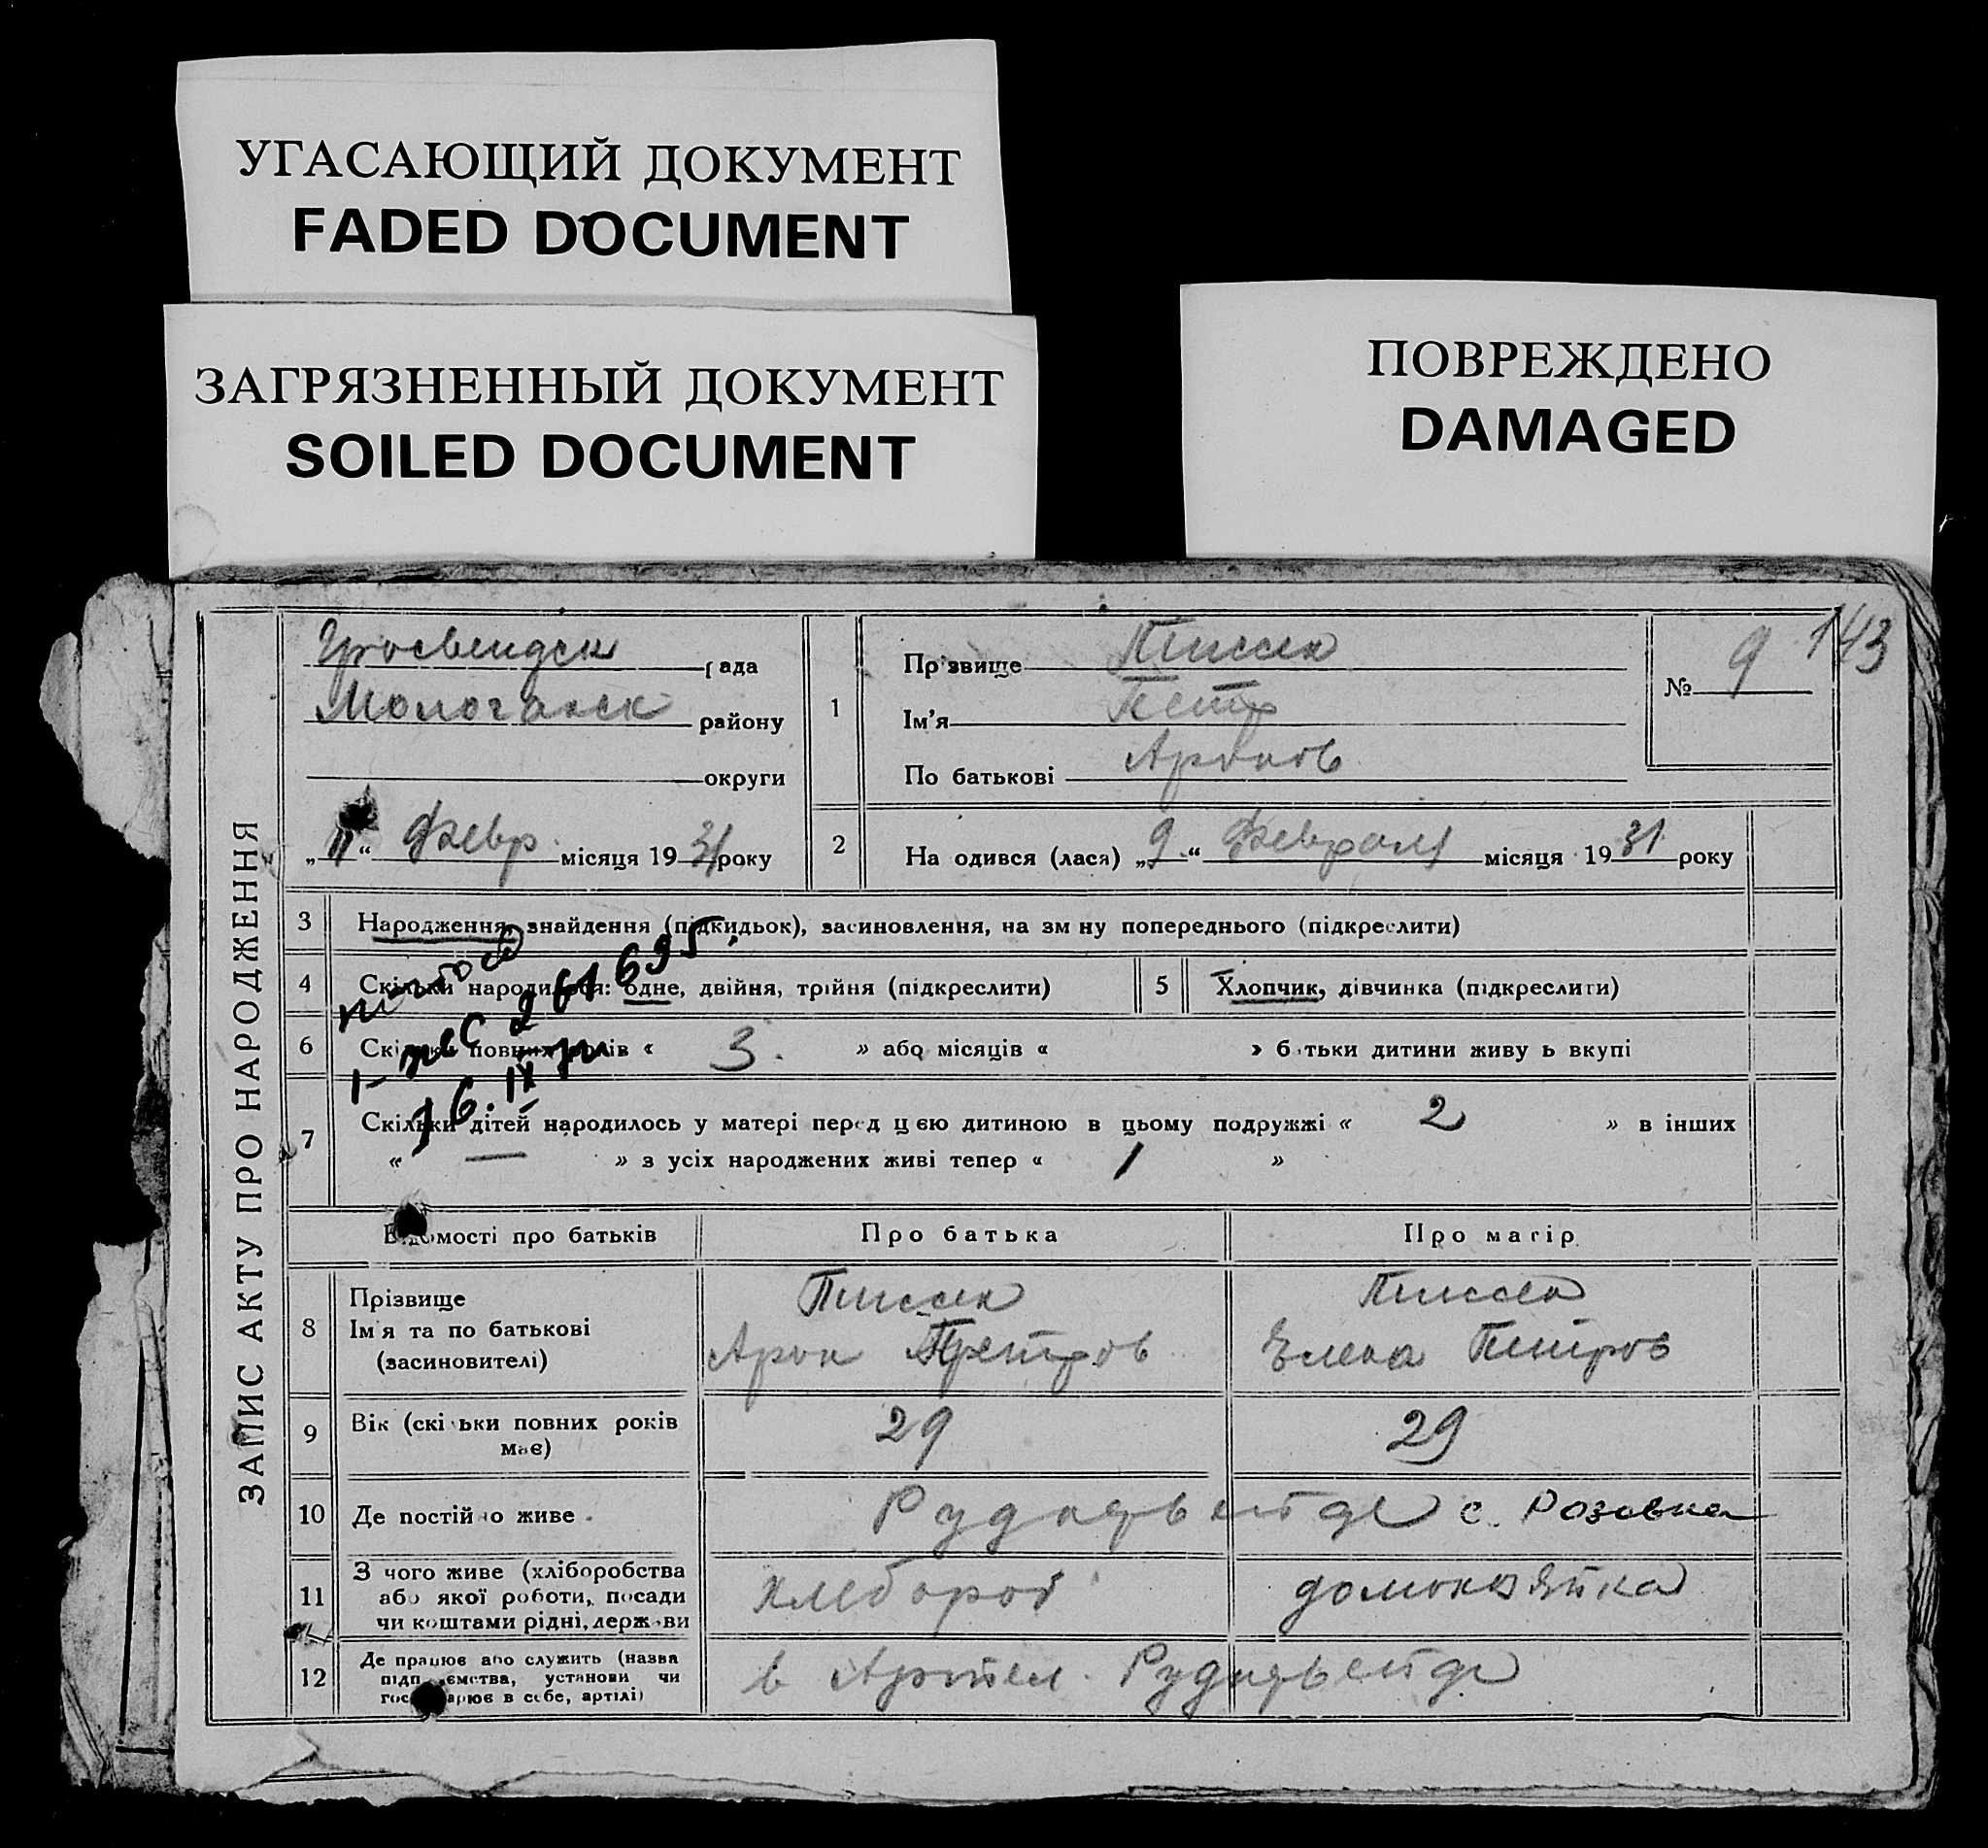 УГАСАЮЩИЙ ДОКУМЕНТ
FADED DOCUMENT
ЗАГРЯЗНЕННЫЙ ДОКУМЕНТ
SOILED DOCUMENT
ПОВРЕЖДЕНО
DAMAGED
143
ЗАПИС АКТУ ПРО НАРОДЖЕННЯ
рада
Молочанск району
округи
„11“ Февр. місяця 1931 року
1
Прізвище
Ім'я Петр
По батькові Аронов
№ 9
2 На одився (лася) „9“ Февраля місяця 1931 року
3 Народження, знайдення (підкидьок), засиновлення, на зм ну попереднього (підкреслити)
4 Скільки народилося: одне, двійня, трійня (підкреслити)
5 Хлопчик, дівчинка (підкреслити)
6 Скільки повних років « 3. » або місяців « » батьки дитини живу ь вкупі
7 Скільки дітей народилось у матері перед цею дитиною в цьому подружжі « 2 » в інших
« — » з усіх народжених живі тепер « 1 »
261695.
16.IX
Відомості про батьків
Про батька
Про матір
8 Прізвище
Ім'я та по батькові
(засиновителі)
Арон Петров
Елена Петров
9 Вік (скільки повних років
має)
29
29
10 Де постійно живе
с. Розовка
11 З чого живе (хліборобства
або якої роботи, посади
чи коштами рідні, держави
хлебороб
домохозяйка
12 Де працює або служить (назва
підприємства, установи чи
господарює в себе, артілі)
в Артел.